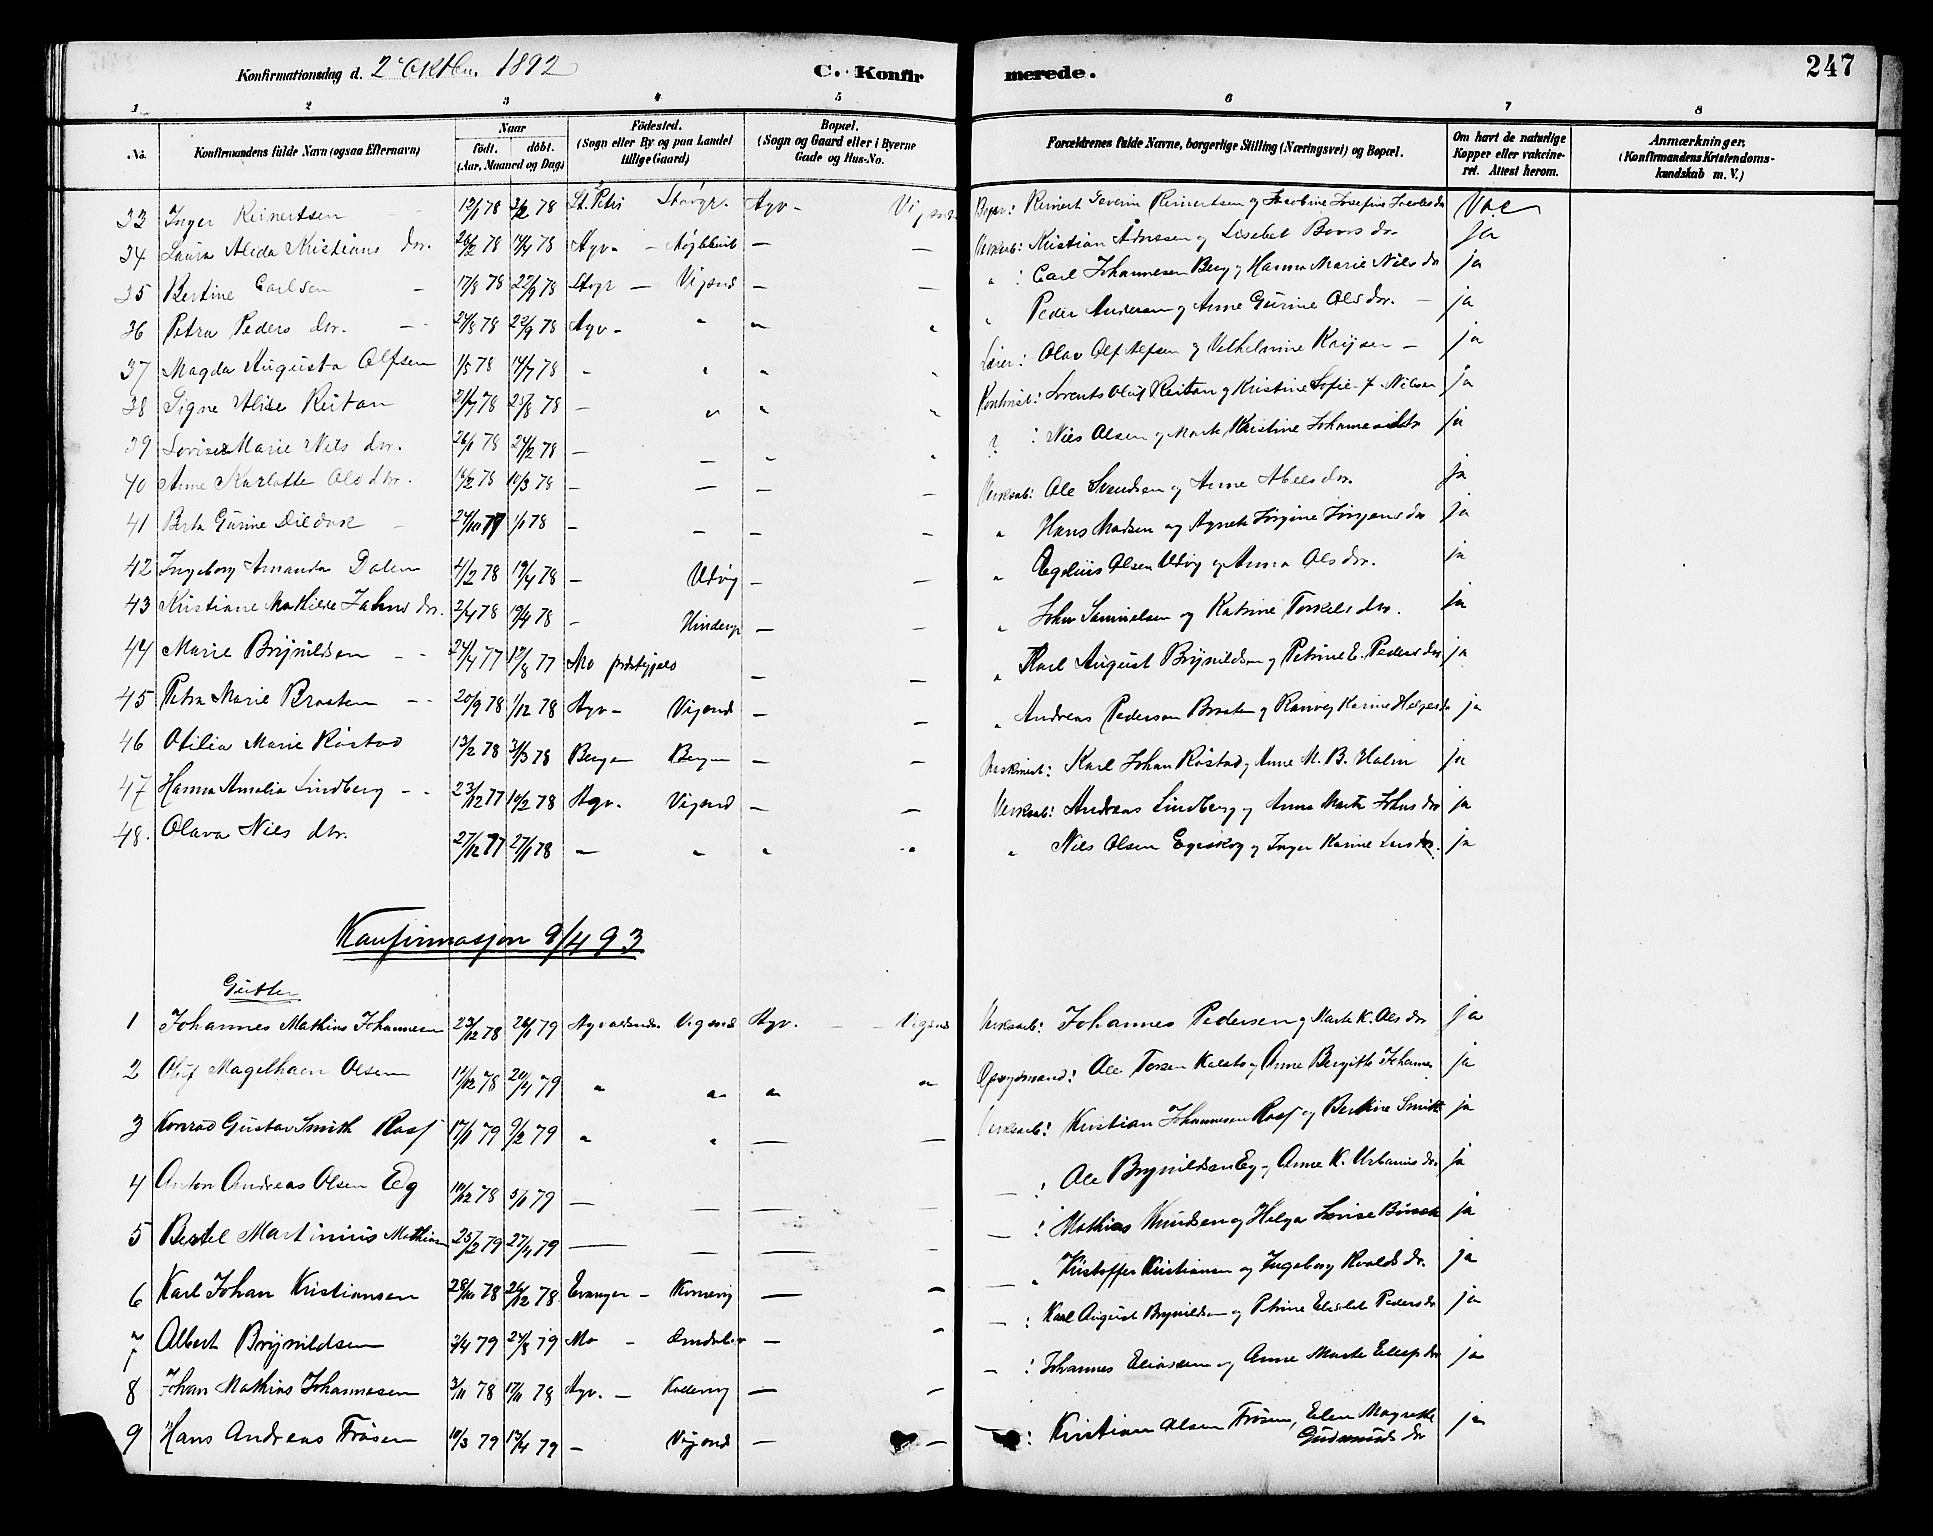 Konfirmationsdag d. 2 Oktbr. 1892 C. Konfirmerede. 247
1 2 3 4 5 6 7 8
No. Konfirmandens fulde Navn (ogsaa Efternavn) Naar födt. döbt. (Aar, Maaned og Dag) Födested. (Sogn eller By og paa Landet tillige Gaard) Bopæl. (Sogn og Gaard eller i Byerne Gade og Hus-No. Forældrenes fulde Navne, borgerlige Stilling (Næringsvei) og Bopæl. Om havt de naturlige Kopper eller vakcineret. Attest herom. Anmærkninger. (Konfirmandens Kristendomskundskab m. V.)
33 Inger Reinertsen 12/1 78 3/2 78 St. Petri Stavgr. Agv. Vigsnes Reinert Severin Reinertsen og Jacobine Josefine Vac
34 Laura Alida Kristians dtr. 28/2 78 14/4 78 Agv. — — Kristian Ådnesen og Lisebet Boors dtr. Ja
35 Bertine Carlsen 17/8 78 22/9 78 Stgr — Vigsnes — — " : Carl Johannesen Berg og Hanna Marie Nils dtr ja
36 Petra Peders dtr. 24/8 78 22/9 78 Agv. " " " Peder Andersen og Anne Gurine Ols dtr. ja
37 Magda Augusta Olfsen 1/5 78 14/7 78 — " " " Lærer: Olav Olf Alfsen og Vilhelmine Kaysen ja
38 Signe Alise Reitan 21/7 78 25/8 78 — " " " Lorents Oluf Reitan og Kristine Sofie f. Nilsen ja
39 Lovise Marie Nils dtr. 26/1 78 24/2 78 — — " " ? : Niels Olsen og Marte Kristine Johannes dtr ja
40 Anne Karlotte Ols dtr. 14/2 78 10/3 78 — — — — Verksarb: Ole Svendsen og Anne Abels dtr. ja
41 Berta Gurine 24/10 77 1/1 78 — — — — " Hans Madsen og Agnete Jorgine Jørgens dtr ja
42 Ingeborg Amanda Dalen 4/2 78 19/4 78 — Udvig — — " Olsen Udvig og Anna Ols dtr. ja
43 Kristiane Mathilde Johns dtr. 2/4 78 19/4 78 — Hinderø — — " John Samuelsen og Katrine Torkels dtr. ja
44 Marie Brynildsen 24/4 77 12/8 77 Mo — — " Karl August Brynildsen og Petrine E. Peders dtr ja
45 Petra Marie Braaten 20/9 78 1/12 78 Agv. Vigsnes — — " Andreas Pedersen Braaten og Ranveig Karine Helges dtr ja
46 Otilia Marie Röstad 13/2 78 31/3 78 Bergen Bergen — — Maskinist: Karl Johan Röstad og Anne M. B. Holm ja
47 Hanna Amalia Lindberg 23/12 77 10/2 78 Agv. Vigsnes — — Verksarb: Andreas Lindberg og Anna Marte Johns dtr ja
48. Olava Nils dtr. 27/12 77 27/1 78 — " " " " Nils Olsen Egeskog og Inger Karine Lars dtr. ja
Konfirmasjon 9/4 93
Gutter
1 Johannes Mathias Johannesen 23/12 78 26/1 79 Agvaldsnes Vigsnes Agv. Vigsnes Verksarb: Johannes Pedersen og Marte K. Ols dtr ja
2 Oluf Magelhaen Olsen 11/12 78 20/4 79 " " " " Opsynsmand: Ole Torsen og Anne Bergitte Johannes ja
3 Konrad Gustav Smith Rasf 17/1 79 9/2 79 " " — — Verksarb: Kristian Johannesen Rasf og Bertine Smith ja
4 Anton Andreas Olsen Eg 10/12 78 5/1 79 — — — — — : Ole Brynildsen Eg og Anne K. Urbanus dtr. ja
5 Bertel Martinius Mathiasen 25/2 79 27/4 79 — — — — — : Mathias Knudsen og Helga Lovise ja
6 Karl Johan Kristiansen 28/10 78 26/12 78 — — — " Kristoffer Kristiansen og Ingeborg Roalds dtr. ja
7 Albert Brynildsen 2/4 79 24/8 79 Mo — — — — : Karl August Brynildsen og Petrine Elisbet Peders dtr ja
8 Johan Mathias Johannesen 3/11 78 17/11 78 Agv. — — — — : Johannes Eliassen og Anne Marte Ellefs dtr ja
9 Hans Andreas Frösen 10/3 79 13/4 79 — Vigsnes — — — : Kristian Olsen Frösen, Elen Magrethe Gudmunds dtr ja